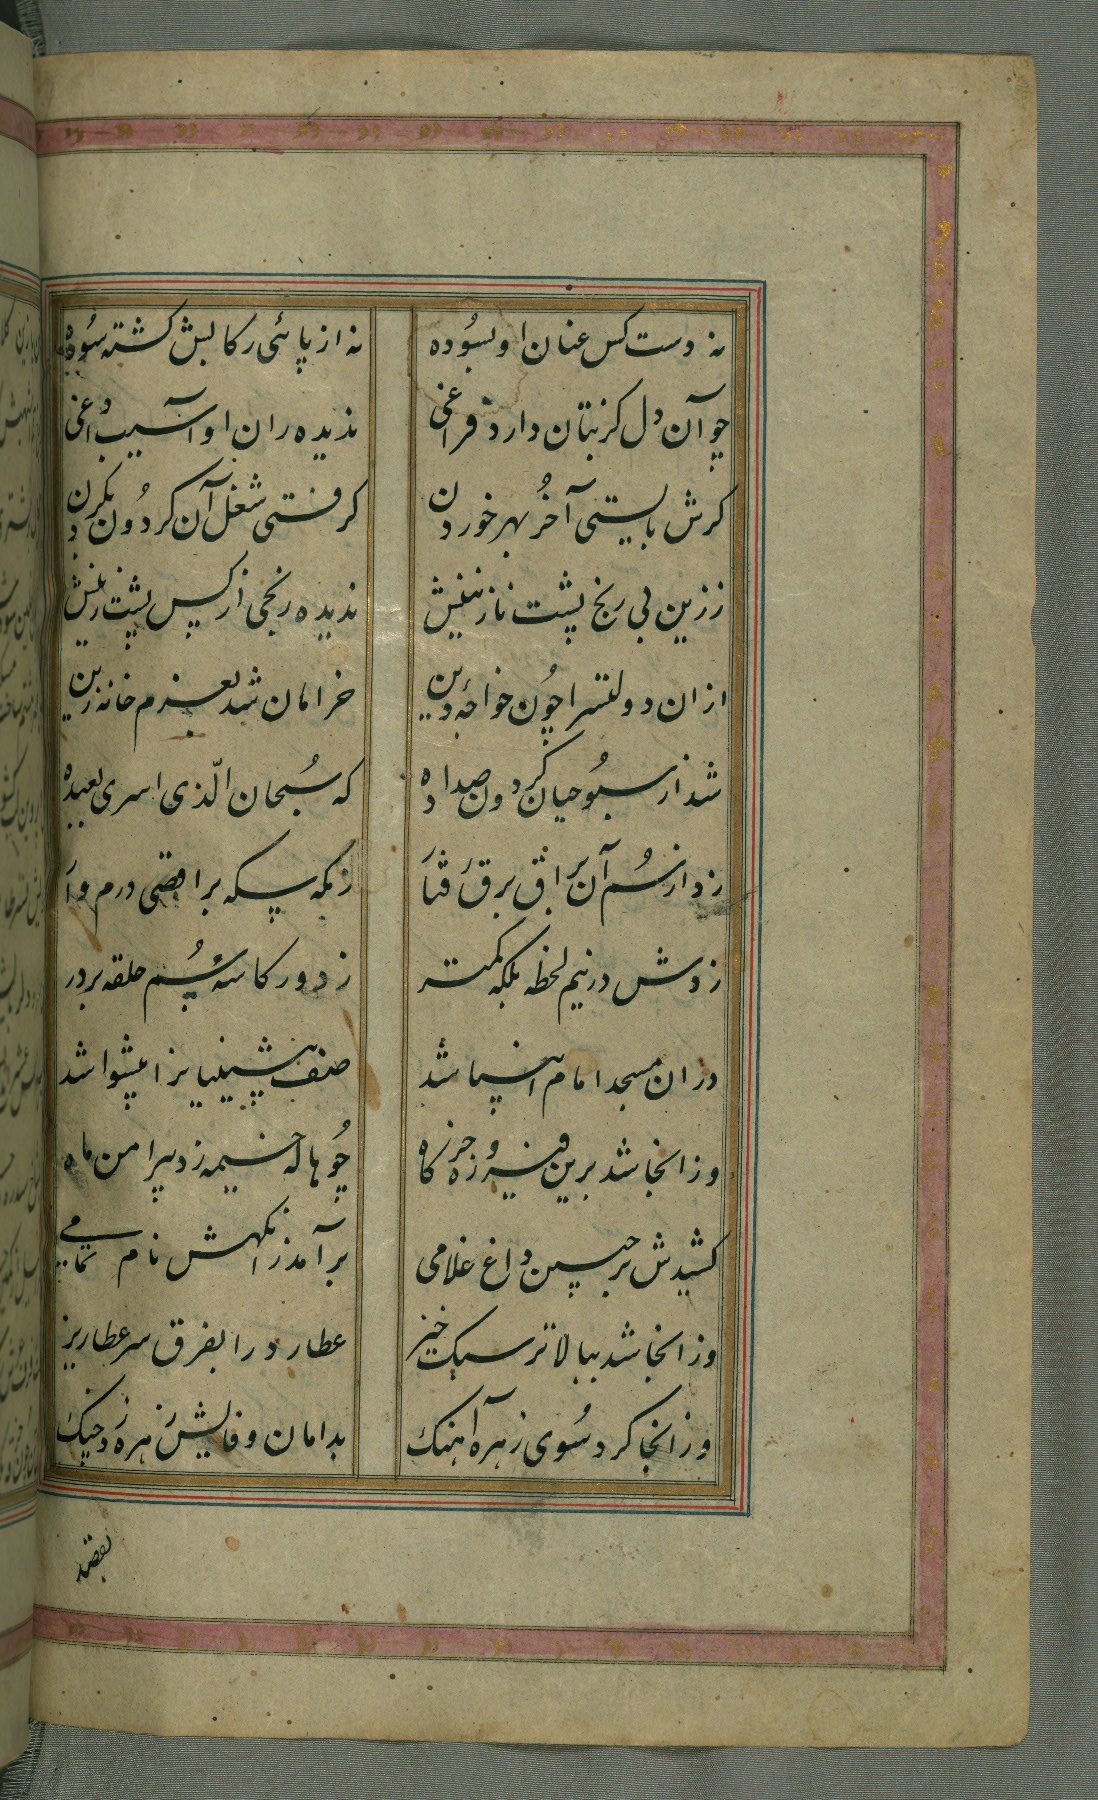 نه دست کس عنان او بسوده نه از پائی رکابش گشته سوده
چو آن دل کز بتان دارد فراغی ندیده ران او آسیب داغی
کرش بایستی آخُر بهر خوردن کرفتی شغل آن کردُون بکردن
ز زین بی رنج پشت نازنینش ندیده رنجی از کس پشت زینش
ازان دولتسرا چُون خواجهٔ دین خرامان شد بعزم خانه زین
شد از سبوُحیان کردون صدا ده که سُبحان الّذی اسری بعبده
زد از سُم آن بُراق برق فتار ز مکه سکه بر اقصی درم وار
زدش در نیم لحظه بلکه کمتر ز دور کاسهٔ سُم حلقه بر در
دران مسجد امام انبیا شد صف پیشینیانرا پیشوا شد
وز انجا شد برین فیروزه خرکاه چُو هاله خیمه زد پیرامن ماه
کشیدش بر جبین داغ غلامی بر آمد زانکهش نام تمامی
وز انجا شد ببالا تر سبک خیز عطارد را بفرق سر عطاریز
وز انجا کرد سُوی زهره آهنک بدامان وفایش زهره زد چنک
بقصد